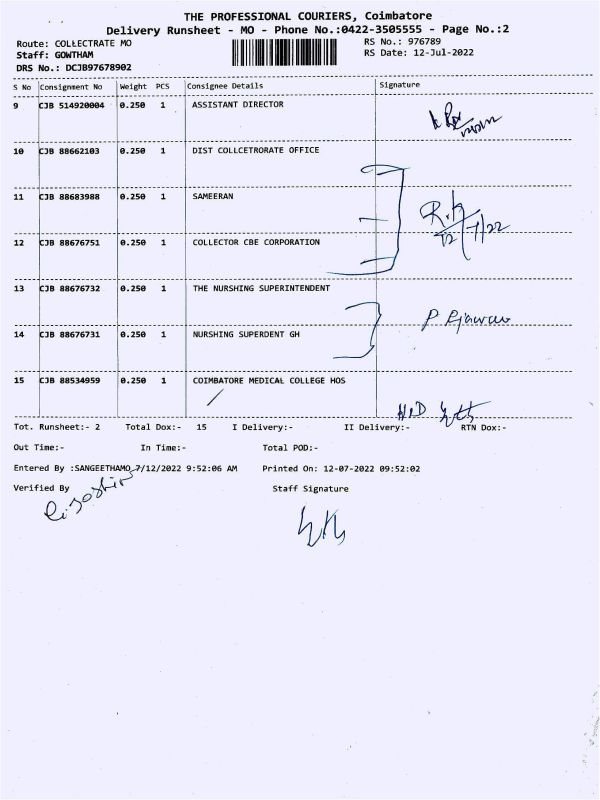 THE PROFESSIONAL COURIERS, Coimbatore
Delivery Runsheet - MO - Phone No.:0422-3505555 - Page No.:2
Route: COLLECTRATE MO RS No.: 976789
Staff: GOWTHAM RS Date: 12-Jul-2022
DRS No.: DCJB97678902
S No Consignment No Weight PCS Consignee Details Signature
9 CJB 514920004 0.250 1 ASSISTANT DIRECTOR
10 CJB 88662103 0.250 1 DIST COLLCETRORATE OFFICE
11 CJB 88683988 0.250 1 SAMEERAN
12 CJB 88676751 0.250 1 COLLECTOR CBE CORPORATION
13 CJB 88676732 0.250 1 THE NURSHING SUPERINTENDENT
14 CJB 88676731 0.250 1 NURSHING SUPERDENT GH
15 CJB 88534959 0.250 1 COIMBATORE MEDICAL COLLEGE HOS
Tot. Runsheet:- 2 Total Dox:- 15 I Delivery:- II Delivery:- RTN Dox:-
Out Time:- In Time:- Total POD:-
Entered By :SANGEETHAMO 7/12/2022 9:52:06 AM Printed On: 12-07-2022 09:52:02
Verified By Staff Signature